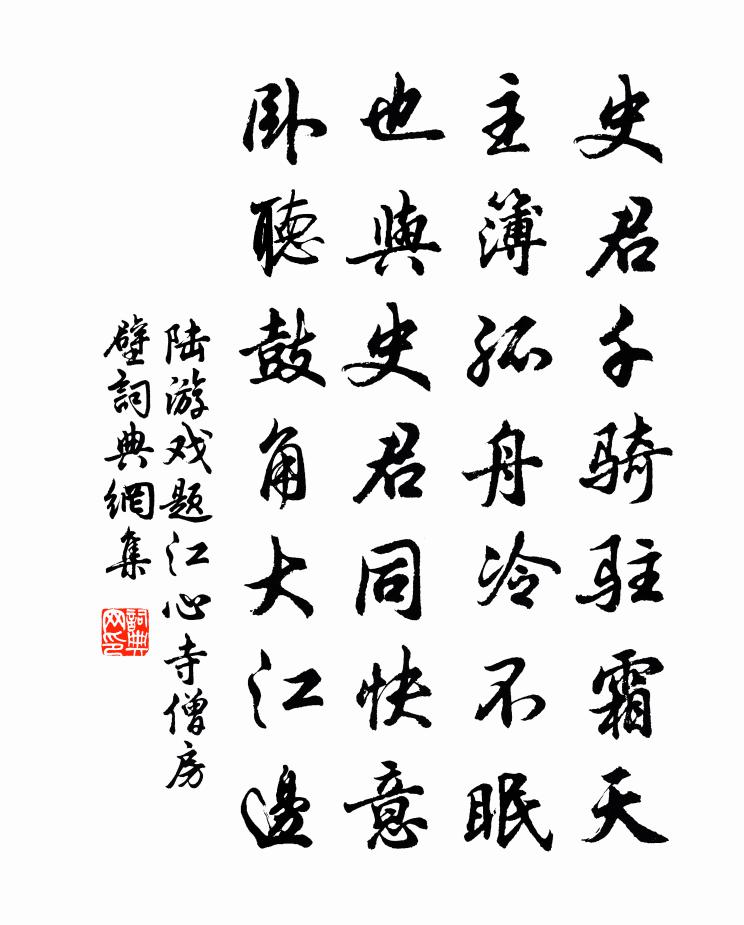 史君千骑駐霜天
主簿孤舟冷不眠
也與史君同快意
卧聽鼓角大江邊
陆游戏题江心寺僧房
壁詞典網集
詞典
网印